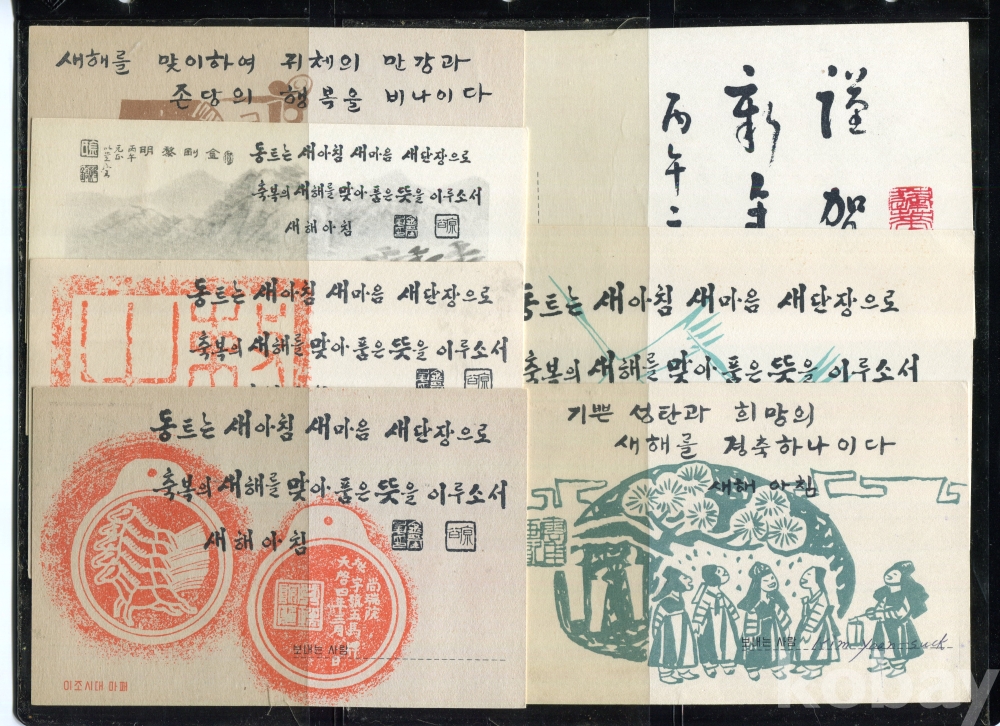 새해를 맞이하여 귀체의 만강과
존당의 행복을 비나이다
謹賀
新年
丙午 二
金剛黎明
丙午
元正
동트는 새아침 새마음 새단장으로
축복의 새해를 맞아 품은 뜻을 이루소서
새해아침
동트는 새아침 새마음 새단장으로
축복의 새해를 맞아 품은 뜻을 이루소서
동트는 새아침 새마음 새단장으로
축복의 새해를 맞아 품은 뜻을 이루소서
동트는 새아침 새마음 새단장으로
축복의 새해를 맞아 품은 뜻을 이루소서
새해아침
尙瑞院
字號五馬
天啓四年三月 日
보내는 사람
이조시대 마패
기쁜 성탄과 희망의
새해를 경축하나이다
새해 아침
보내는 사람
kobay